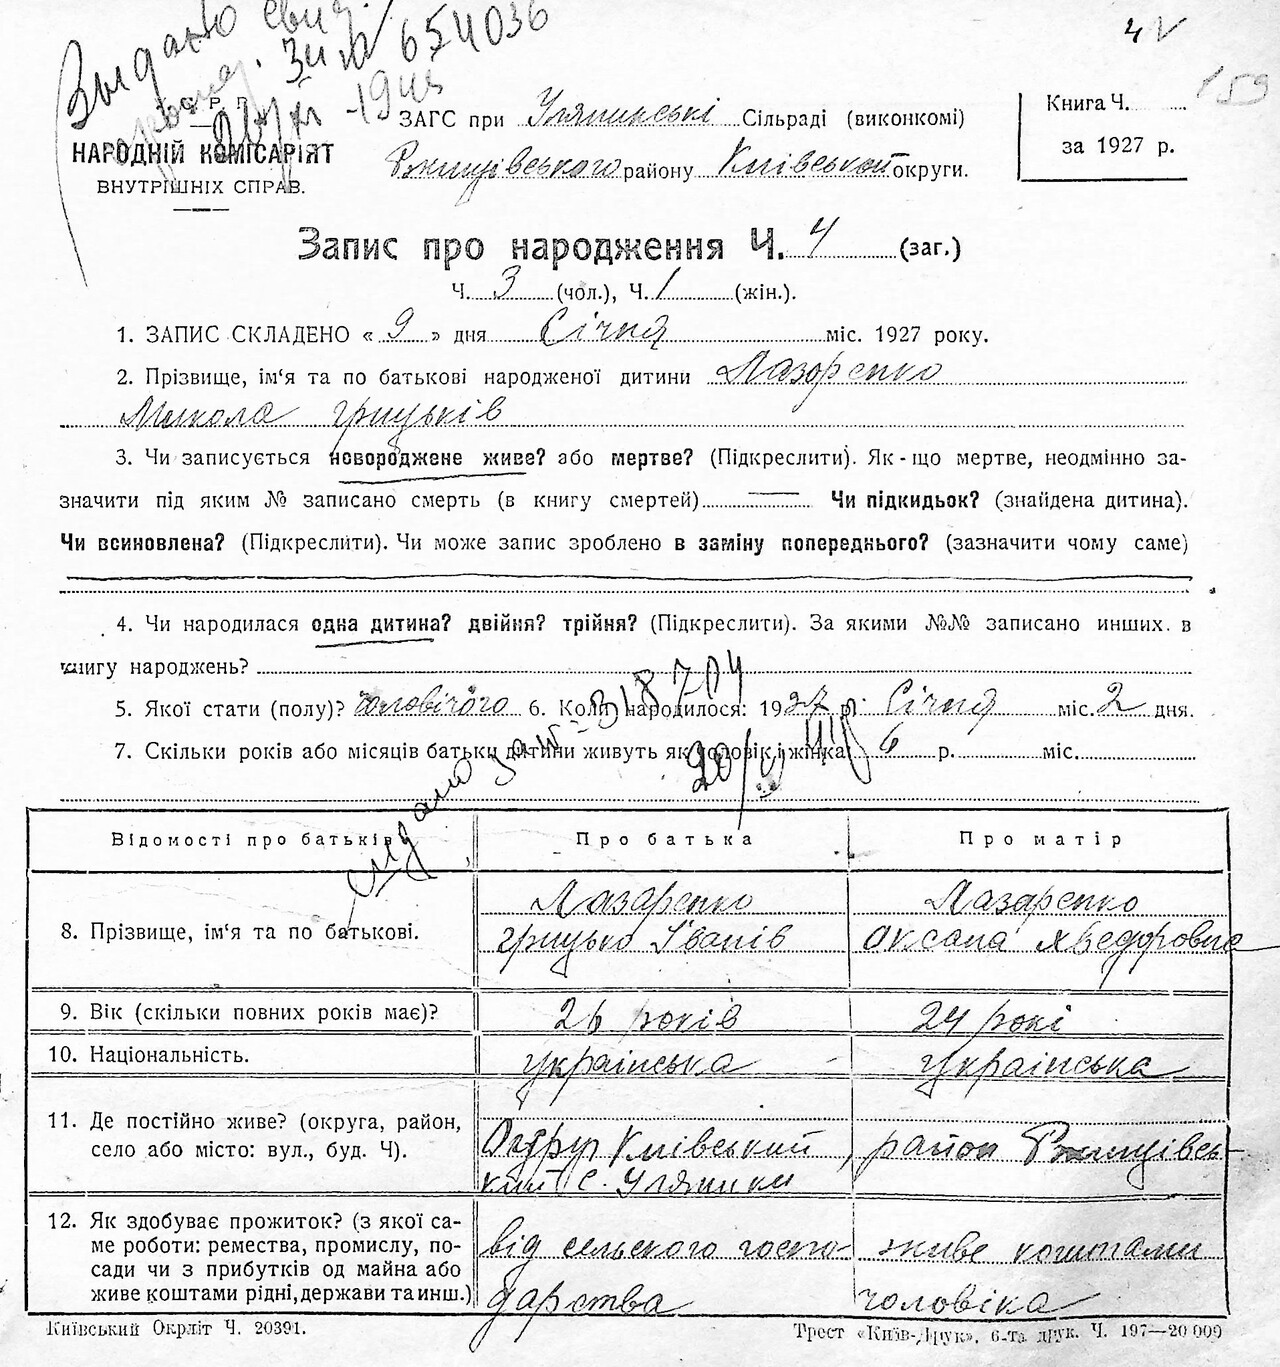 Выдано свид.
ЗИ № 654036
1945
4
159
У. С. Р. Р.
НАРОДНІЙ КОМІСАРІЯТ
ВНУТРІШНІХ СПРАВ.
ЗАГС при Уляниські Сільраді (виконкомі)
Ржищівського району Київської округи.
Книга Ч.
за 1927 р.
Запис про народження Ч. 4 (заг.)
Ч. 3 (чол.), Ч. 1 (жін.).
1. ЗАПИС СКЛАДЕНО « 9 » дня Січня міс. 1927 року.
2. Прізвище, ім‘я та по батькові народженої дитини Лазоренко
Микола Грицьків
3. Чи записується новороджене живе? або мертве? (Підкреслити). Як-що мертве, неодмінно за-
значити під яким № записано смерть (в книгу смертей) Чи підкидьок? (знайдена дитина).
Чи всиновлена? (Підкреслити). Чи може запис зроблено в заміну попереднього? (зазначити чому саме)
4. Чи народилася одна дитина? двійня? трійня? (Підкреслити). За якими №№ записано инших в
книгу народжень?
5. Якої стати (полу)? чоловічого 6. Коли народилося: 1927 р. Січня міс. 2 дня.
7. Скільки років або місяців батьки дитини живуть як чоловік і жінка 6 р. міс.
видано 318704
20/
Відомості про батьків Про батька Про матір
8. Прізвище, ім‘я та по батькові. Лазаренко Грицько Іванів Лазаренко Оксана Хведоровна
9. Вік (скільки повних років має)? 26 років 24 рокі
10. Національність. українська українська
11. Де постійно живе? (округа, район,
село або місто: вул., буд. Ч). Округ Київський, район Ржищівсь-
кий с. Уляники
12. Як здобуває прожиток? (з якої са-
ме роботи: ремества, промислу, по-
сади чи з прибутків од майна або
живе коштами рідні, держави та инш.)
від сельского госпо-
дарства
живе коштами
чоловіка
Київський Окрліт Ч. 20391.
Трест «Київ-Друк», 6-та друк. Ч. 197—20 000